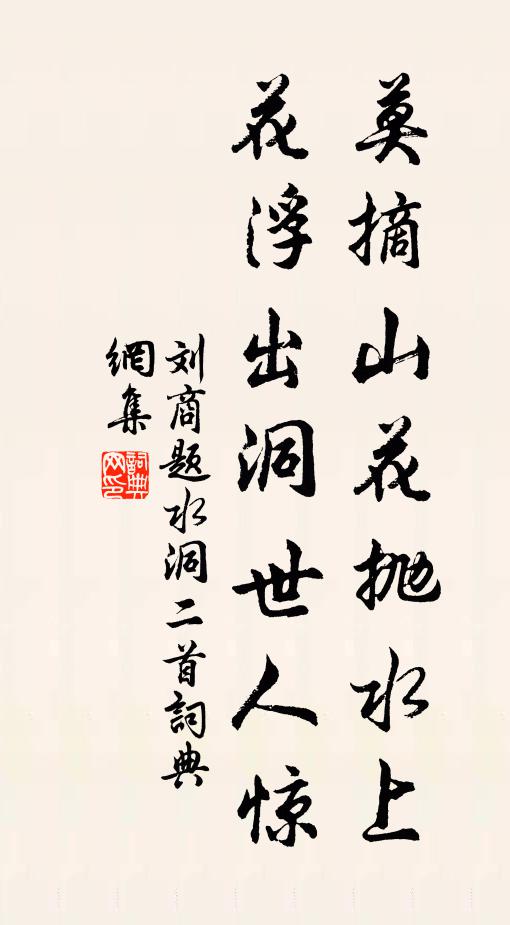 莫摘山花抛水上
花浮出洞世人惊
刘商题水洞二首詞典
網集
詞典网印